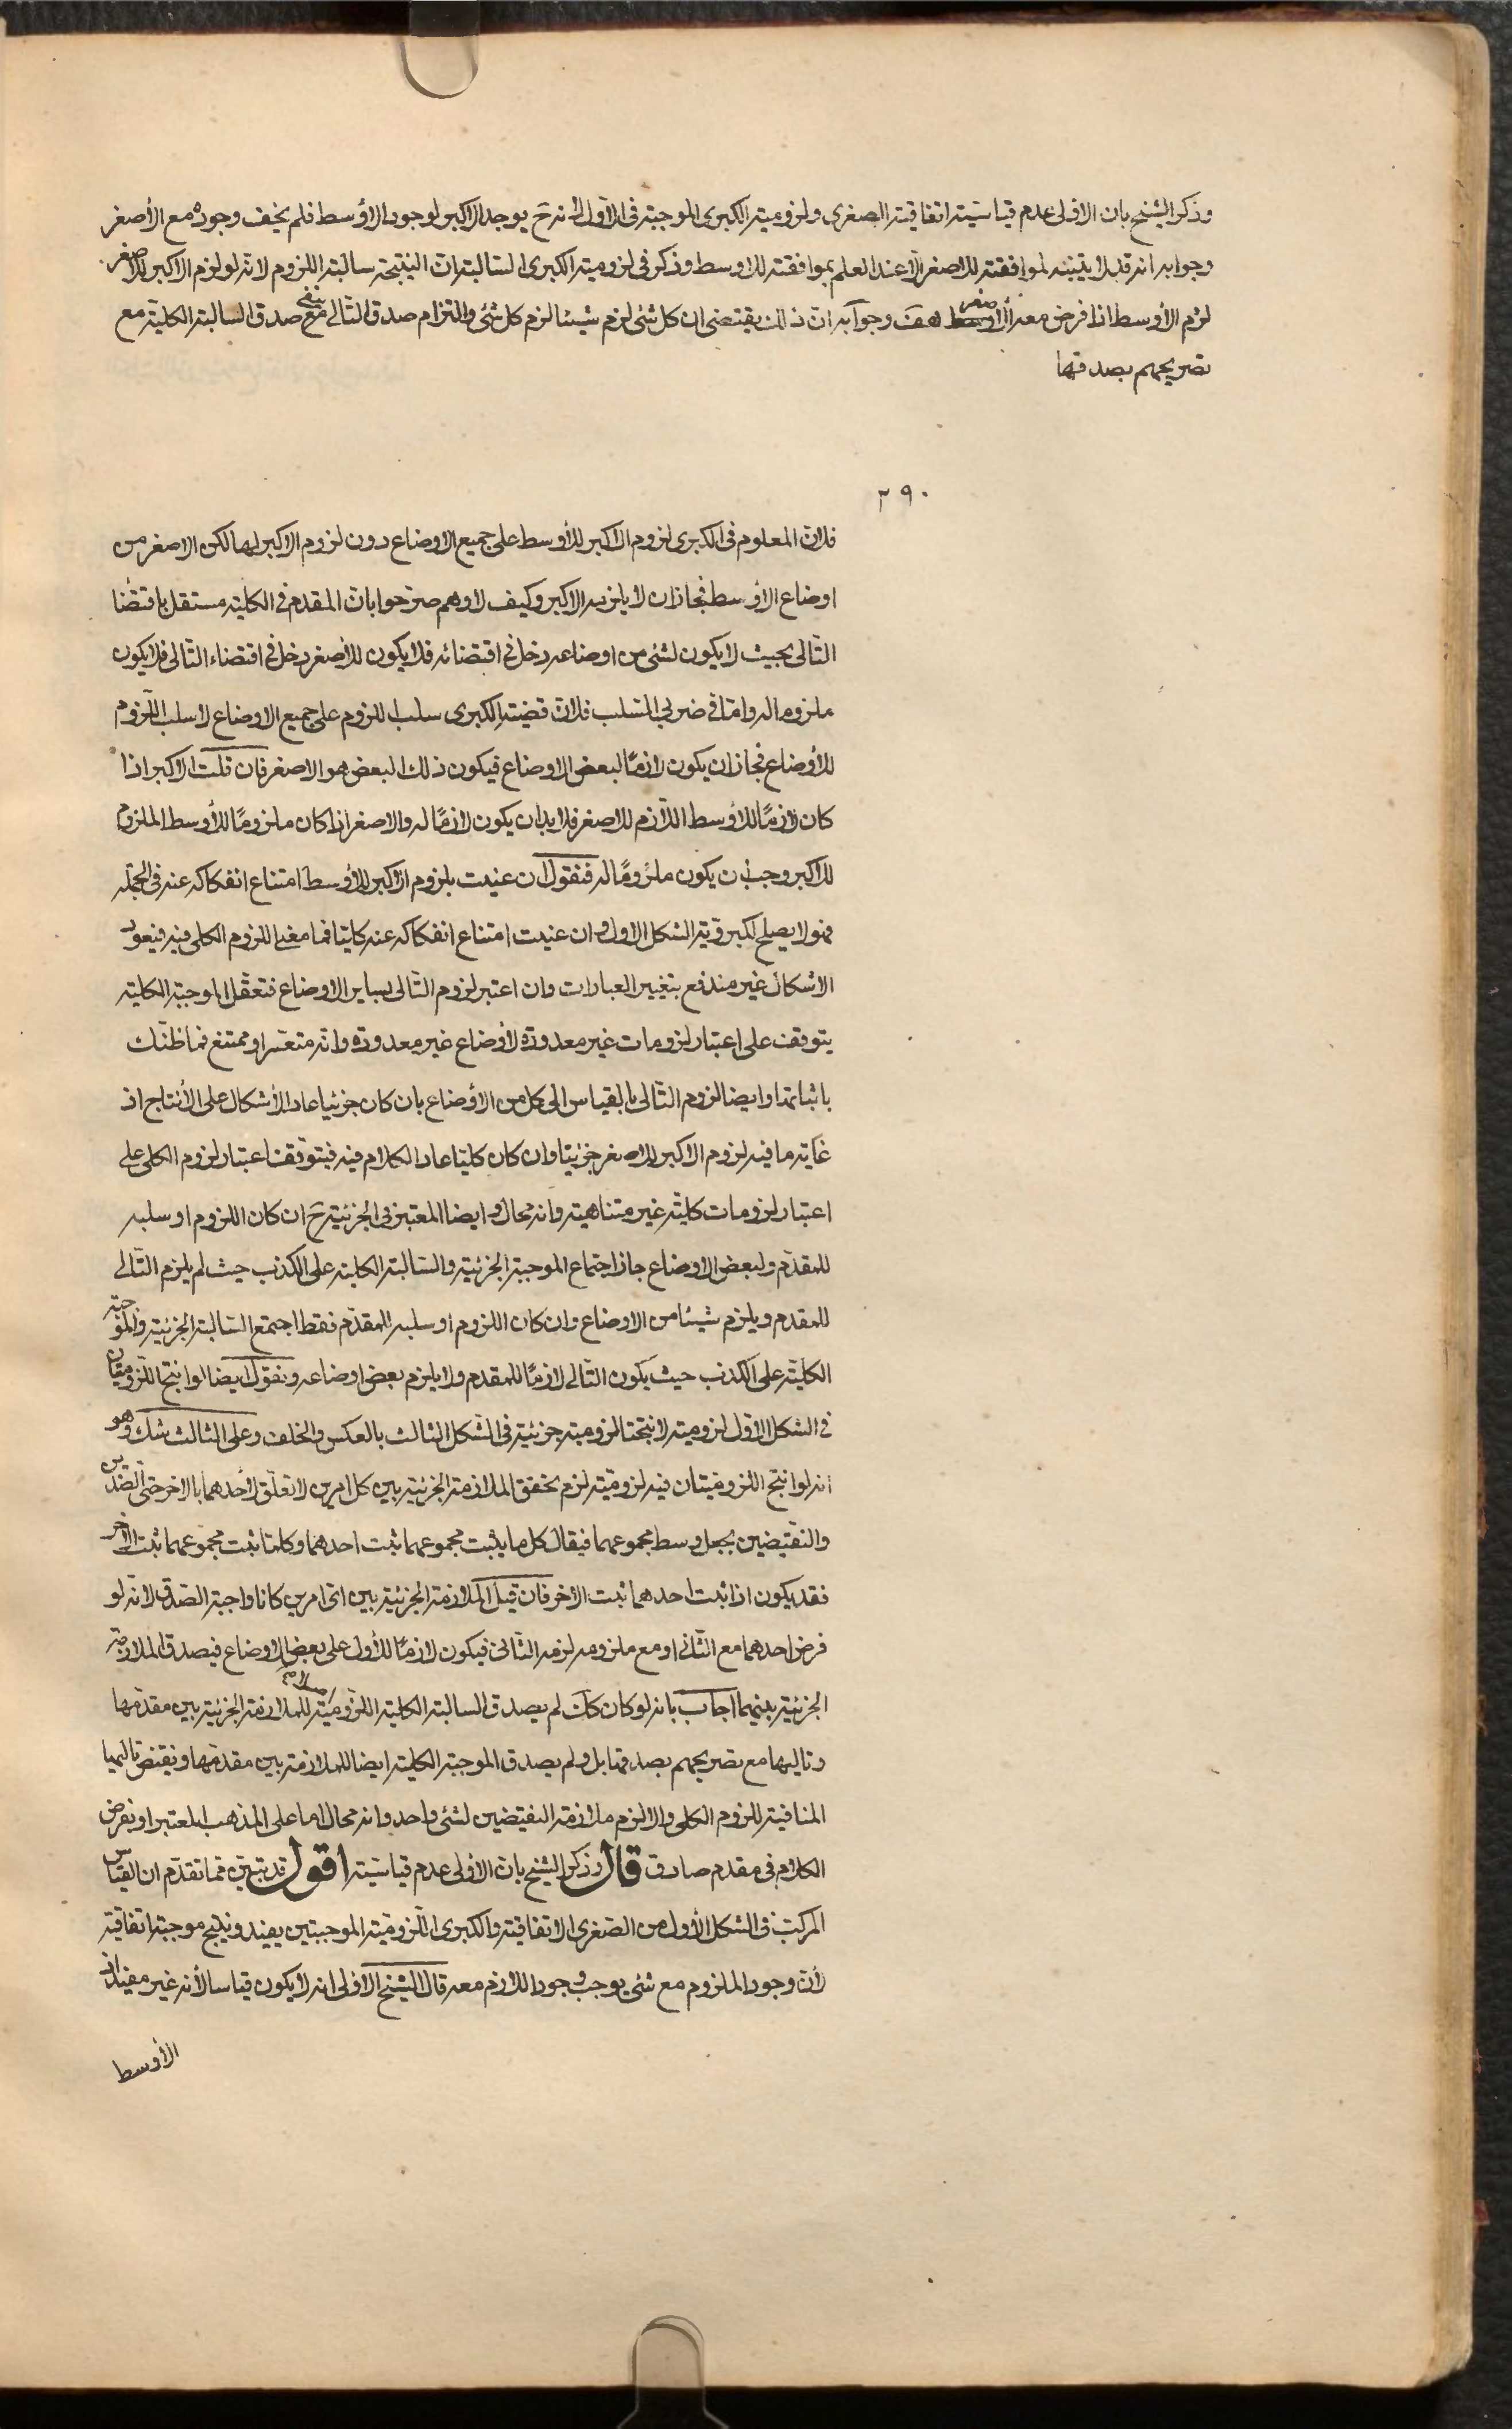 وذكر الشيخ بان الاولى عدم قياسيته اتفاقية الصغرى ولزومية الكبرى الموجبة فى الاول لانه ح يوجد الاكبر لوجود الاوسط فلم يخف وجوده مع الأصغر
وجوابه انه قد لا يتنبه لموافقته للاصغر الا عند العلم بموافقته للاوسط وذكر فى لزومية الكبرى السالبة ان النتيجة سالبة اللزوم لانه لو لزم الاكبر للاصغر
لزم الأوسط اذا فرض معه الاصغر هف وجوابه ان ذلك يقتضى ان كل شئ لزم شيئا لزم كل شئ والتزام صدق التالى مع ينفى صدق السالبة الكلية مع
تصريحهم بصدقها
٢٩٠
فلان المعلوم فى الكبرى لزوم الاكبر للأوسط على جميع الاوضاع دون لزوم الاكبر لها لكن الاصغر من
اوضاع الاوسط فجاز ان لا يلزمه الاكبر وكيف لا وهم صرحوا بان المقدم فى الكلية مستقل باقتضا
التالى بحيث لا يكون لشئ من اوضاعه دخل فى اقتضائه فلا يكون للأصغر دخل فى اقتضاء التالى فلا يكون
ملزوما له واما فى ضربى السلب فلان قضية الكبرى سلب اللزوم على جميع الاوضاع لا سلب اللزوم
للأوضاع فجاز ان يكون لازمًا لبعض الاوضاع فيكون ذلك البعض هو الاصغر فان قلت الاكبر اذا
كان لازمًا للاوسط اللازم للاصغر فلا بد ان يكون لازمًا له والاصغر اذا كان ملزومًا للأوسط الملزوم
للاكبر وجب ان يكون ملزومًا له فنقول ان عنيت بلزوم الاكبر للأوسط امتناع انفكاكه عنه فى الجملة
فهو لا يصلح لكبروية الشكل الاول وان عنيت امتناع انفكاكه عنه كليا فما معنى اللزوم الكلى فيه فيعود
الاشكال غير مندفع بتغيير العبارات وان اعتبر لزوم التالى لساير الاوضاع فتعقل الموجبة الكلية
يتوقف على اعتبار لزومات غير معدودة لأوضاع غير معدودة وانه متعسر او ممتنع فما ظنك
باثباتها وايضا لزوم التالى بالقياس الى كل من الأوضاع بان كان جزئيا عاد الأشكال على الأنتاج اذ
غاية ما فيه لزوم الاكبر للاصغر جزئيا وان كان كليا عاد الكلام فيه فيتوقف اعتبار لزوم الكلى على
اعتبار لزومات كلية غير متناهية وانه محال وايضا المعتبر فى الجزئية ح ان كان اللزوم او سلبه
للمقدم ولبعض الاوضاع جاز اجتماع الموجبة الجزئية والسالبة الكلية على الكذب حيث لم يلزم التالى
للمقدم ويلزم شيئا من الاوضاع وان كان اللزوم او سلبه للمقدم فقط اجتمع السالبة الجزئية والموجبة
الكلية على الكذب حيث يكون التالى لازمًا للمقدم ولا يلزم بعض اوضاعه ونقول ايضا لو انتج اللزوميتان
فى الشكل الاول لزومية لانتجتا لزومية جزئية فى الشكل الثالث بالعكس والخلف وعلى الثالث شك وهو
انه لو انتج اللزوميتان فيه لزومية لزم تحقق الملازمة الجزئية بين كل امرين لا تعلق لاحدهما بالاخر حتى الضدين
والنقيضين بجعل وسط مجموعهما فيقال كل ما يثبت مجموعهما ثبت احدهما وكلما ثبت مجموعهما ثبت الآخر
فقد يكون اذا ثبت احدهما ثبت الاخر فان قيل الملازمة الجزئية بين اى امرين كانا واجبة الصدق لانه لو
فرض احدهما مع الثانى او مع ملزومه لزمه الثانى فيكون لازمًا للأول على بعض الاوضاع فيصدق الملازمة
الجزئية بينهما اجاب بانه لو كان كك لم يصدق السالبة الكلية اللزومية للملازمة الجزئية بين مقدمها
وتاليها مع تصريحهم بصدقها بل ولم يصدق الموجبة الكلية ايضا للملازمة بين مقدمها ونقيض تاليها
المنافية للزوم الكلى والا لزم ملازمة النقيضين لشئ واحد وانه محال اما على المذهب المعتبر او نفرض
الكلام فى مقدم صادق قال وذكر الشيخ بان الأولى عدم قياسيته اقول قد تبين فما تقدم ان القياس
المركب فى الشكل الأول من الصغرى الاتفاقية والكبرى اللزومية الموجبتين يفيد وينتج موجبة اتفاقية
لأن وجود الملزوم مع شئ يوجب وجود اللازم معه قال الشيخ الاولى انه لا يكون قياسا لأنه غير مفيد اذ
الأوسط